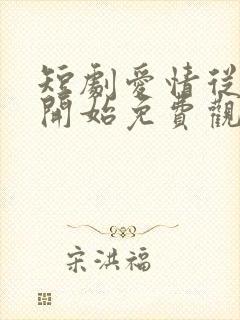 短劇愛情從
開始免費觀
宋洪福